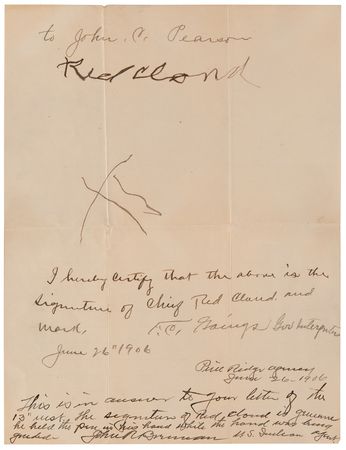 to John. C. Pearson
Red Cloud
I hereby certify that the above is the
signature of Chief Red Cloud. and
mark.
Gov Interpreter
June 26" 1906
Pine Ridge Agency
June 26. 1906
This is in answer to your letter of the
13" inst. The signature of Red Cloud is genuine
he held the pen in his hand while the hand was being
guided. John R Brennan U.S. Indian Agent